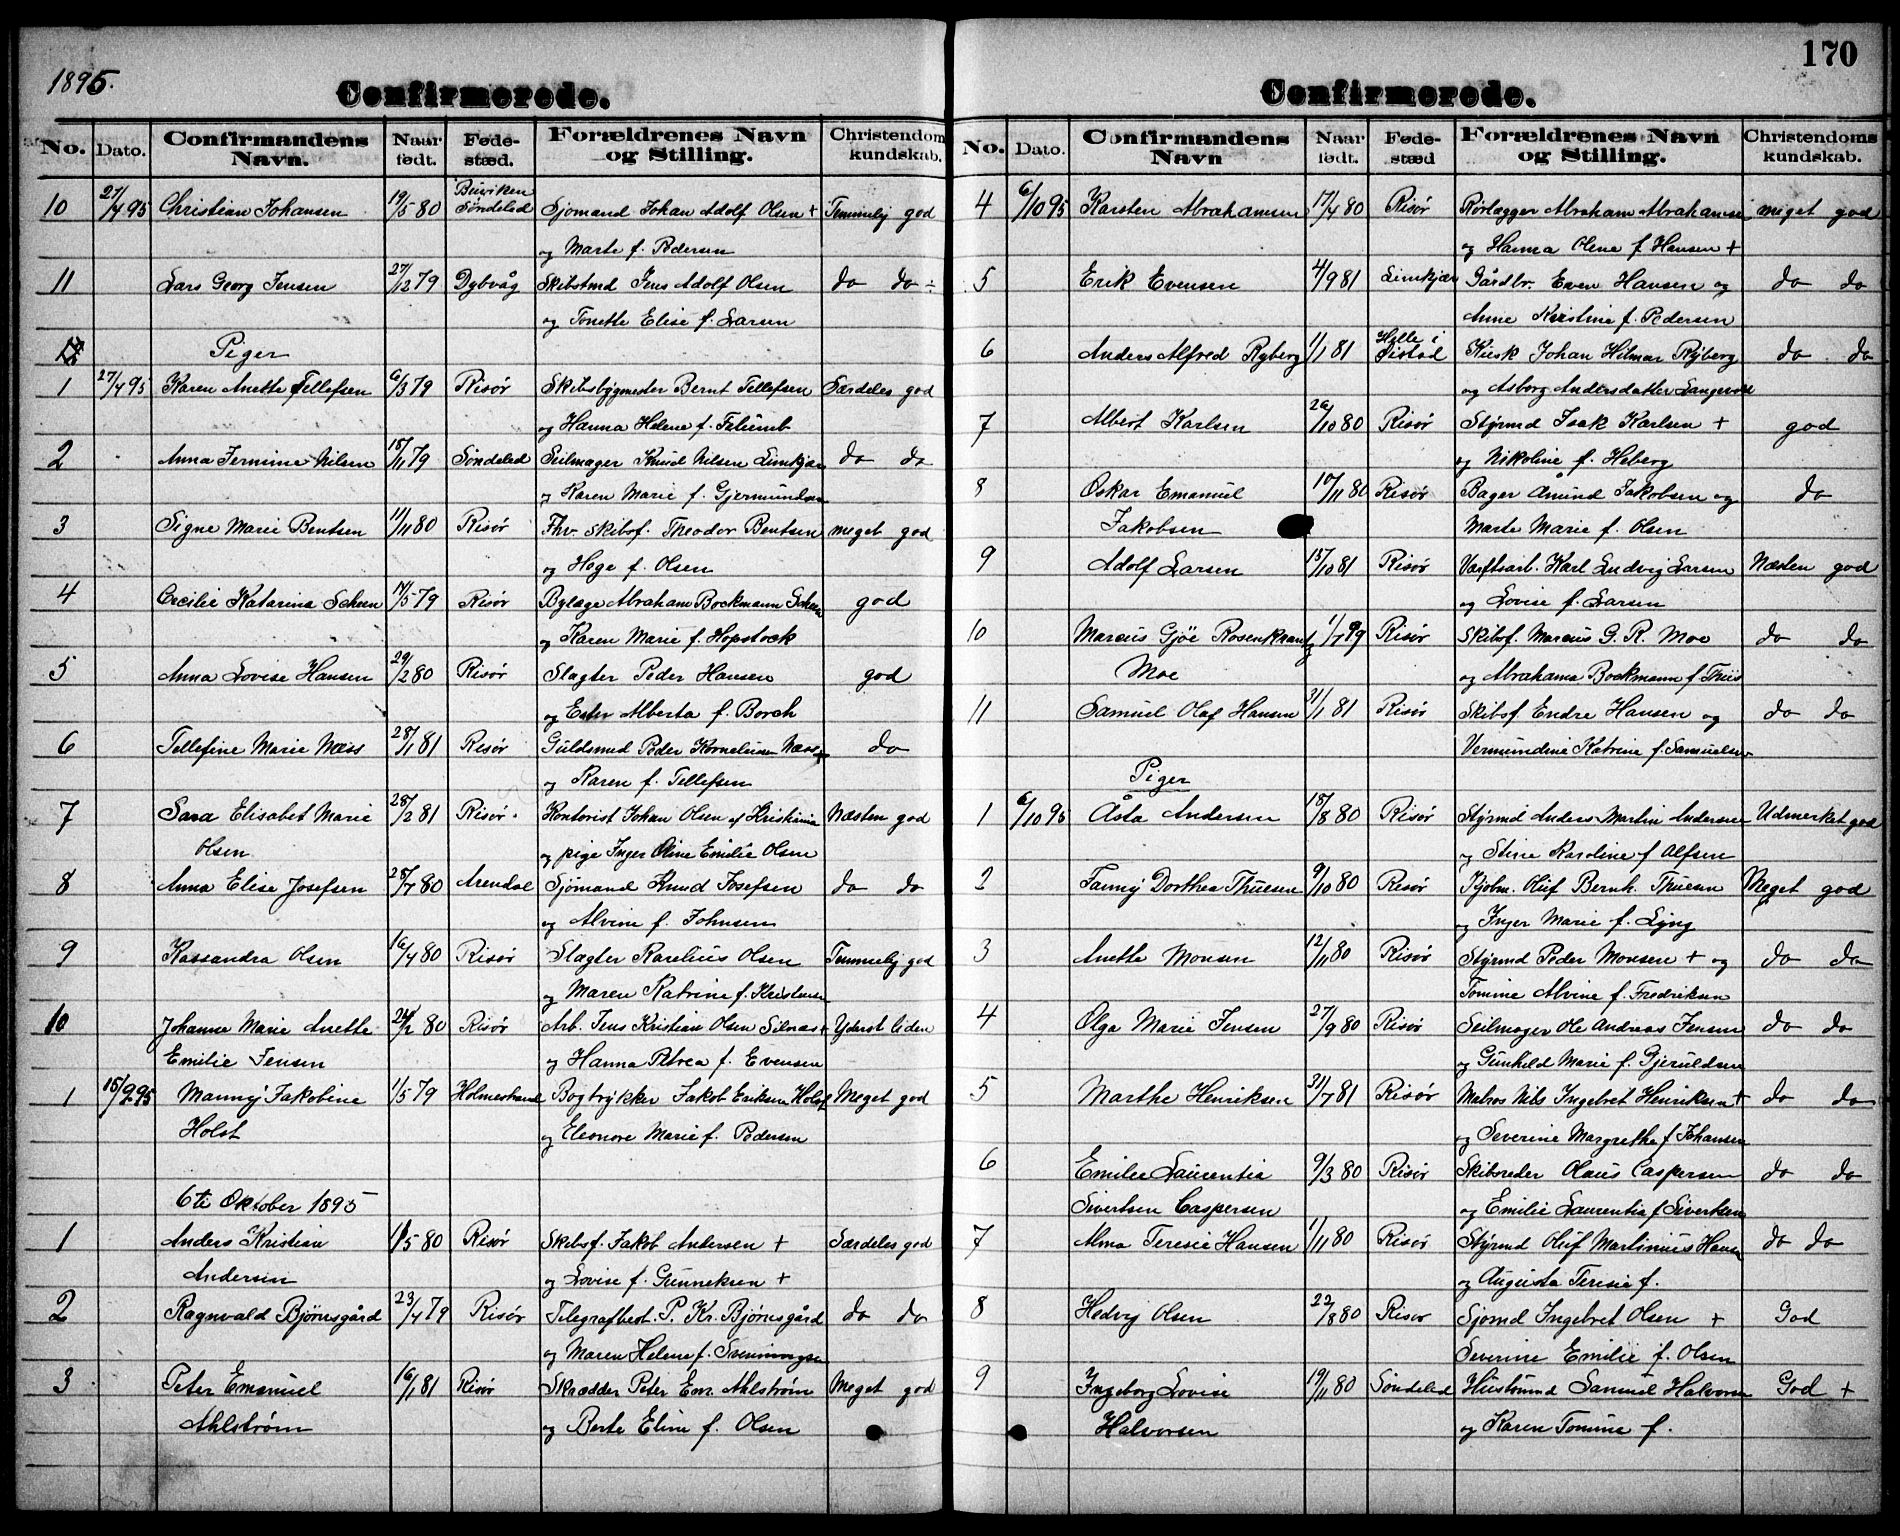 1895.
Confirmerede.
No. Dato. Confirmandens Navn. Naar født. Føde-stæd. Forældrenes Navn og Stilling. Christendoms kundskab.
Buviken
10 27/4 95 Christian Johansen 19/5 80 Søndeled Sjømand Johan Adolf Olsen + Temmelig god
og Marte f. Pedersen
11 Lars Georg Jensen 27/12 79 Dybvåg Skibstmd Jens Adolf Olsen do do ÷
og Tonette Elise f. Larsen
Piger
1 27/4 95 Karen Anette Tellefsen 6/3 79 Risør Skibsbygmester Bernt Tellefsen Særdeles god
og Hanna Helene f.
2 Anna Jermine Nilsen 18/11 79 Søndeled Seilmager Knud Nilsen Limkjær do do
og Karen Marie f. Gjermundsen
3 Signe Marie Bentsen 11/11 80 Risør Fhv. Skibsf. Theodor Bentsen meget god
og Hege f. Olsen
4 Cecilie Katarina Scheen 14/5 79 Risør Bylæge Abraham Bockmann Scheen god
og Karen Marie f. Hopstock
5 Anna Lovise Hansen 29/2 80 Risør Slagter Peder Hansen god
og Ester Alberta f. Borch
6 Tellefine Marie Næss 28/1 81 Risør Guldsmed Peder Korneliusen Næss + do
og Karen f. Tellefsen
7 Sara Elisabet Marie 28/2 81 Risør. Kontorist Johan Olsen af Kristiania Næsten god
Olsen og pige Inger Oline Emilie Olsen
8 Anna Elise Josefsen 28/7 80 Arendal Sjömand Knud Josefsen do do
og Alvine f. Johnsen
9 Kassandra Olsen 16/4 80 Risør Slagter Karelius Olsen Temmelig god
og Maren Katrine f. Kristensen
10 Johanne Marie Anette 24/2 80 Risør Arb. Jens Kristian Olsen Silnæs + Yderst liden
Emilie Jensen og Hanna Petrea f. Evensen
1 15/9 95 Manny Jakobine 1/5 79 Holmestrand Bogtrykker Jakob Eriksen Holst Meget god
Holst og Eleonore Marie f. Pedersen
6te Oktober 1895
1 Anders Kristian 11/5 80 Risør Skibsf. Jakob Andersen + Særdeles god
Andersen og Lovise f. Gunneksen +
2 Ragnvald Bjørnsgård 23/4 79 Risør Telegrafbest. P. Kr. Bjørnsgård do do
og Maren Helene f. Svenningsen
3 Peter Emanuel 16/1 81 Risør Skrædder Peter Em. Ahlstrøm Meget god
Ahlstrøm og Berte Eline f. Olsen
170
Confirmerede.
No. Dato. Confirmandens Navn Naar født. Føde-stæd Forældrenes Navn og Stilling. Christendoms kundskab.
4 6/10 95 Karsten Abrahamsen 17/4 80 Risør Rørlægger Abraham Abrahamsen meget god
og Hanna Olene f. Hansen +
5 Erik Evensen 4/9 81 Limkjær Gårdbr. Even Hansen og do do
Anne Kristine f. Pedersen
Helle i
6 Anders Alfred Ryberg 1/1 81 Øistad Kusk Johan Hilmar Ryberg do do
og Asborg Andersdatter Langevold
7 Albert Karlsen 26/10 80 Risør Styrmd Isak Karlsen + god
og Nikoline f. Heberg
8 Oskar Emanuel 10/11 80 Risør Bager Åmund Jakobsen og do
Jakobsen Marte Marie f. Olsen
9 Adolf Larsen 15/10 81 Risør Værftsarb. Karl Ludvig Larsen Næsten god
og Lovise f. Larsen
10 Marcus Gjöe Rosenkrantz 1/7 79 Risør Skibsf. Marcus G. R. Moe do do
Moe og Abrahama Bockmann f. Thiis
11 Samuel Olaf Hansen 31/1 81 Risør Skibsf Endre Hansen og do do
Vermundine Katrine f. Samuelsen
Piger
1 6/10 95 Åsta Andersen 18/8 80 Risør Styrmd Anders Martin Andersen Udmerket god
og Stine Karoline f. Alfsen
2 Fanny Dorthea Thuesen 9/10 80 Risør Kjøbm. Oluf Bernh. Thuesen Meget god
og Inger Marie f. Lyng
3 Anette Monsen 12/11 80 Risør Styrmd Peder Monsen + og do do
Tomine Alvine f. Fredriksen
4 Olga Marie Jensen 27/9 80 Risør Seilmager Ole Andreas Jensen do do
og Gunhild Marie f. Gjeruldsen
5 Marthe Henriksen 31/7 81 Risør Matros Nils Ingebret Henriksen + do do
og Severine Margrethe f. Johansen
6 Emilie Laurentia 9/3 80 Risør Skibsreder Olaus Caspersen do do
Sivertsen Caspersen og Emilie Laurentia f. Sivertsen
7 Alma Teresie Hansen 1/11 80 Risør Styrmd Oluf Martinius Hansen do do
og Augusta Teresie f.
8 Hedvig Olsen 22/8 80 Risør Sjømd Ingebret Olsen + God
Severine Emilie f. Olsen
9 Ingeborg Lovise 19/11 80 Søndeled Hustømmd Samuel Halvorsen God +
Halvorsen og Karen Tomine f.